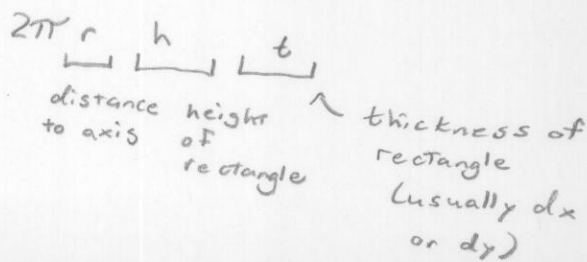 2π r h t
distance
to axis
height
of
rectangle
thickness of
rectangle
(usually dx
or dy)